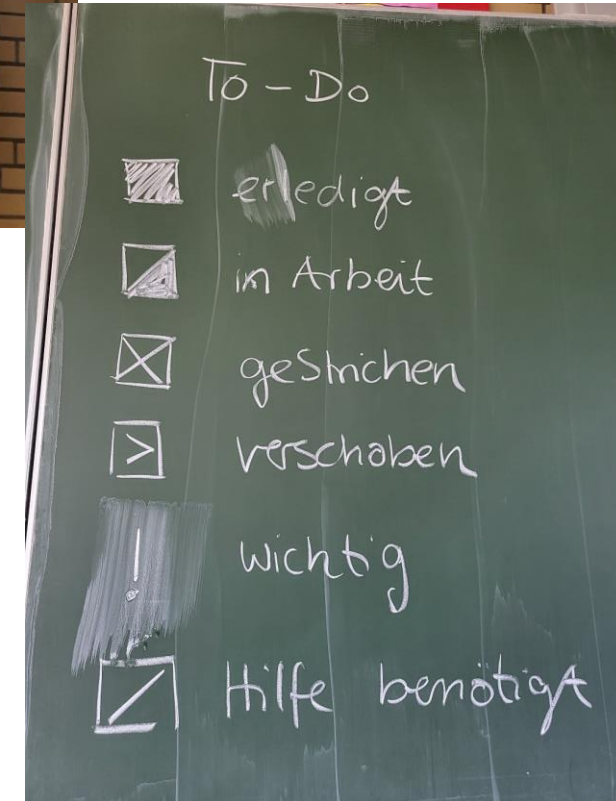 To-Do
erledigt
in Arbeit
gestrichen
> verschoben
! wichtig
Hilfe benötigt